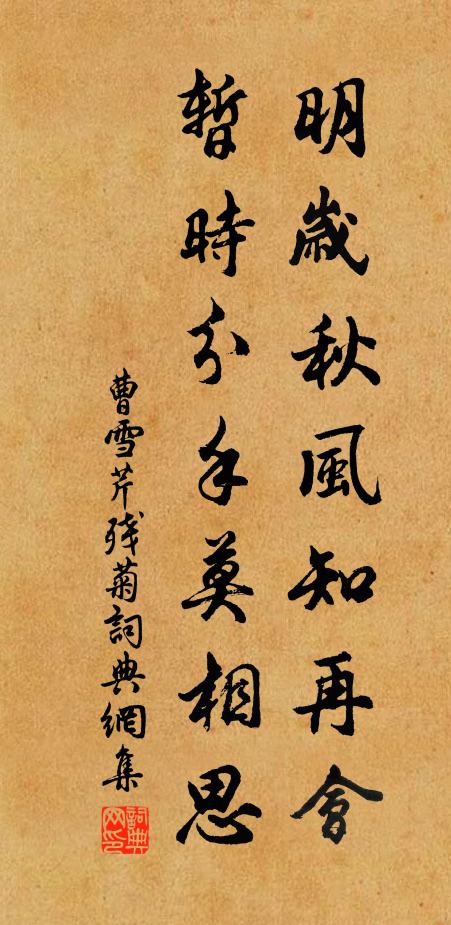 明歲秋風知再會
暫時分手莫相思
曹雪芹殘菊詞典網集
詞典網印